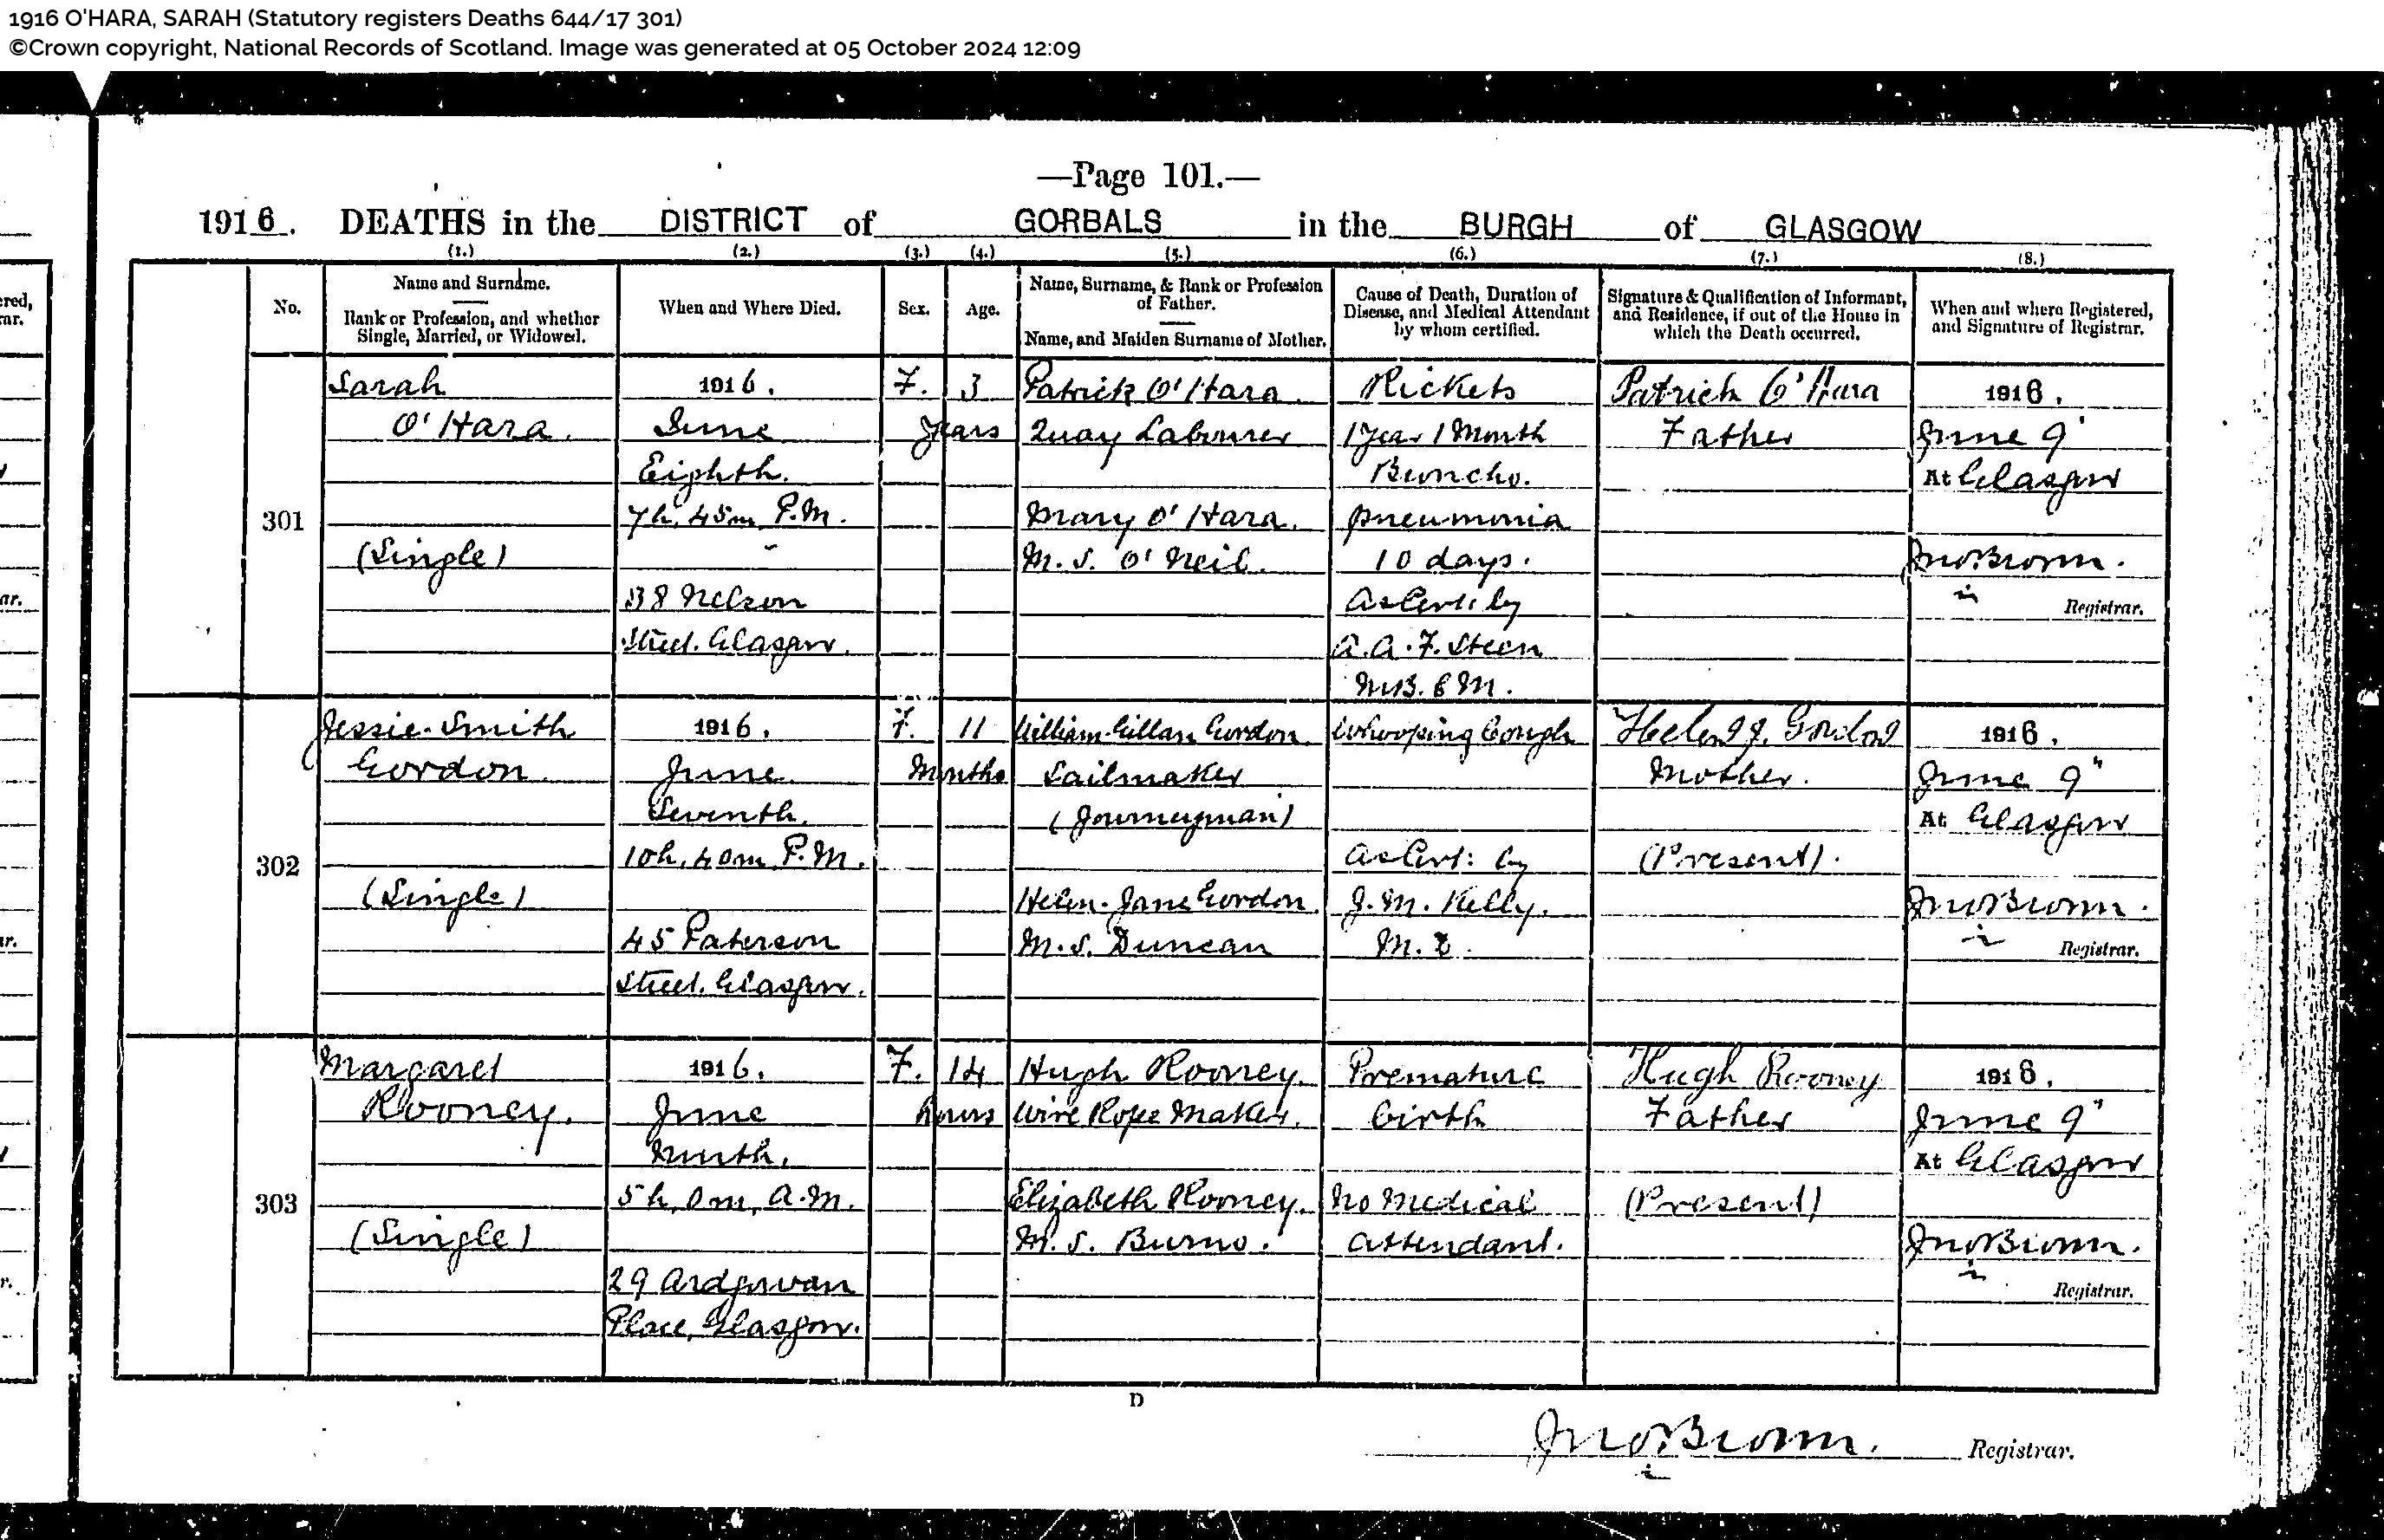 1916 O'HARA, SARAH (Statutory registers Deaths 644/17 301)
©Crown copyright, National Records of Scotland. Image was generated at 05 October 2024 12:09
—Page 101.—
1916. DEATHS in the DISTRICT of GORBALS in the BURGH of GLASGOW
(1.) (2.) (3.) (4.) (5.) (6.) (7.) (8.)
No.
Name and Surname.
Rank or Profession, and whether
Single, Married, or Widowed.
When and Where Died.
Sex.
Age.
Name, Surname, & Rank or Profession
of Father.
Name, and Maiden Surname of Mother.
Cause of Death, Duration of
Disease, and Medical Attendant
by whom certified.
Signature & Qualification of Informant,
and Residence, if out of the House in
which the Death occurred.
When and where Registered,
and Signature of Registrar.
301
Sarah
O'Hara.
(Single)
1916.
June
Eighth.
7h. 45m P.M.
38 Nelson
Street. Glasgow.
F.
3
Years
Patrick O'Hara.
Quay Labourer
Mary O'Hara.
M.S. O'Neil.
Rickets
1 Year 1 Month
Broncho.
pneumonia
10 days.
As Cert: by
A.A.F. Steen
M.B. C M.
Patrick O'Hara
Father
1916.
June 9"
At Glasgow
Jno. Brown.
Registrar.
302
Jessie Smith
Gordon
(Single)
1916.
June
Seventh.
10h. 40m P.M.
45 Paterson
Street. Glasgow.
F.
11
Months
William Gillan Gordon.
Sailmaker
(Journeyman)
Helen Jane Gordon
M.S. Duncan
Whooping Cough
As Cert: by
J. M. Kelly.
Helen J. Gordon
Mother.
(Present).
1916.
June 9"
At Glasgow
Jno Brown.
Registrar.
303
Margaret
Rooney.
(Single)
1916.
June
Ninth.
5h. 0m. A.M.
29 Ardgowan
Place, Glasgow.
F.
14
hours
Hugh Rooney.
Wire Rope Maker.
Elizabeth Rooney.
M.S. Burns.
Premature
birth
No Medical
Attendant.
Hugh Rooney
Father
(Present)
1916.
June 9"
At Glasgow
Jno Brown.
Registrar.
D
Jno. Brown. Registrar.
ered,
rar.